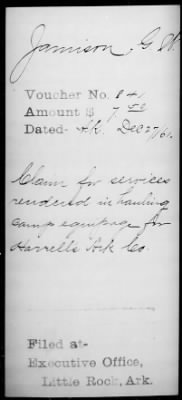 Jamison, G. W.
Voucher No. 841
Amount $ 7.50
Dated- Ark. Dec 27/61.
Claim for services
rendered in hauling
camp equipage for
Harrell's Ark Co.
Filed at-
Executive Office,
Little Rock, Ark.